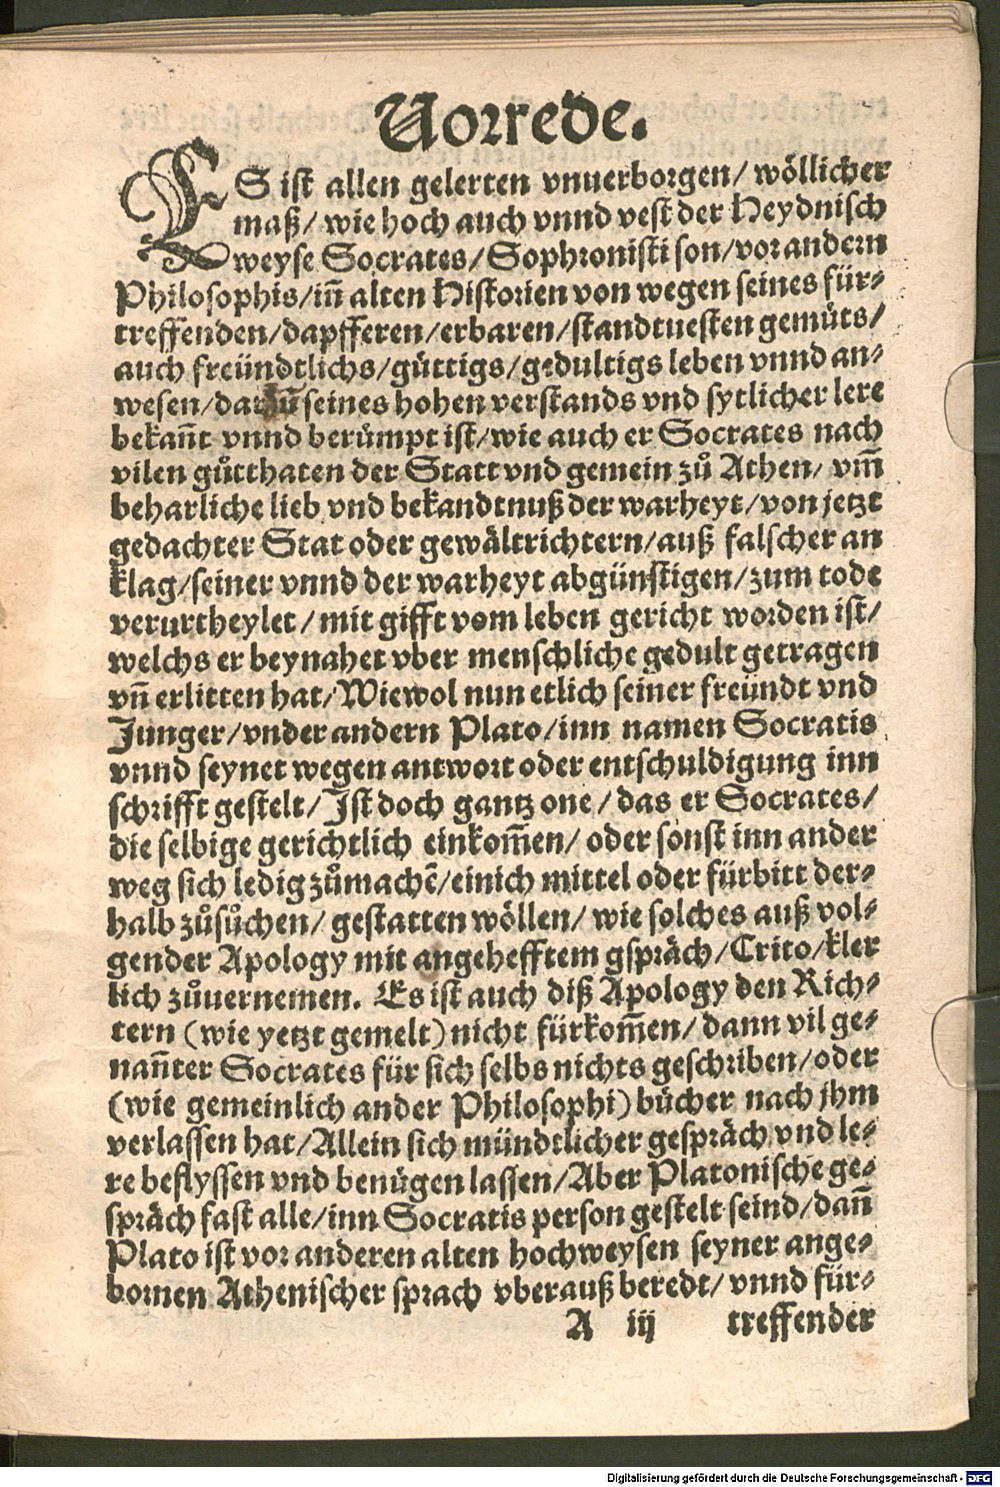 Vorrede.
ES ist allen gelerten vnuerborgen/ wöllicher
maß/ wie hoch auch vnnd vest der Heydnisch
weyse Socrates/ Sophronisti son/ vor andern
Philosophis/ iñ alten Historien von wegen seines für-
treffenden/ dapfferen/ erbaren/ standtuesten gemůts/
auch freündtlichs/ güttigs/ gedultigs leben vnnd an-
wesen/ darzů seines hohen verstands vnd sytlicher lere
bekañt vnnd berümpt ist/ wie auch er Socrates nach
vilen gůtthaten der Statt vnd gemein zů Athen/ vm̃
beharliche lieb vnd bekandtnuß der warheyt/ von jetzt
gedachter Stat oder gewältrichtern/ auß falscher an
klag/ seiner vnnd der warheyt abgünstigen/ zum tode
verurtheylet/ mit gifft vom leben gericht worden ist/
welchs er beynahet vber menschliche gedult getragen
vñ erlitten hat/ Wiewol nun etlich seiner freündt vnd
Junger/ vnder andern Plato/ inn namen Socratis
vnnd seynet wegen antwort oder entschuldigung inn
schrifft gestelt/ Ist doch gantz one/ das er Socrates/
die selbige gerichtlich einkom̃en/ oder sonst inn ander
weg sich ledig zůmachē/ einich mittel oder fürbitt der-
halb zůsůchen/ gestatten wöllen/ wie solches auß vol-
gender Apology mit angehefftem gspräch/ Crito/ kler
lich zůuernemen. Es ist auch diß Apology den Rich-
tern (wie yetzt gemelt) nicht fürkom̃en/ dann vil ge-
nañter Socrates für sich selbs nichts geschriben/ oder
(wie gemeinlich ander Philosophi) bücher nach jhm
verlassen hat/ Allein sich mündtlicher gespräch vnd le-
re beflyssen vnd benügen lassen/ Aber Platonische ge-
spräch fast alle/ inn Socratis person gestelt seind/ dañ
Plato ist vor anderen alten hochweysen seyner ange-
bornen Athenischer sprach vberauß beredt/ vnnd für-
A iij treffender
Digitalisierung gefördert durch die Deutsche Forschungsgemeinschaft - DFG